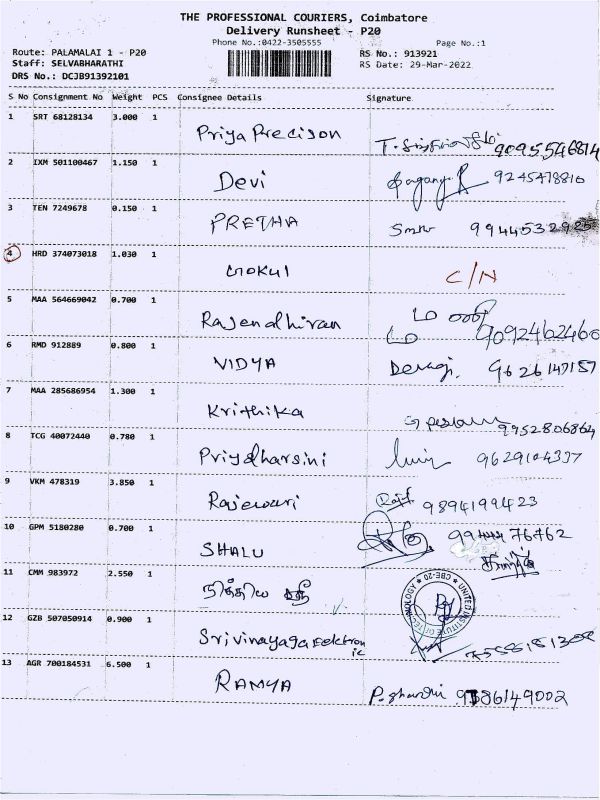 THE PROFESSIONAL COURIERS, Coimbatore
Delivery Runsheet - P20
Phone No.:0422-3505555 Page No.:1
Route: PALAMALAI 1 - P20 RS No.: 913921
Staff: SELVABHARATHI RS Date: 29-Mar-2022
DRS No.: DCJB91392101
S No Consignment No Weight PCS Consignee Details Signature
1 SRT 68128134 3.000 1
Priya Precison 9095546814
2 IXM 501100467 1.150 1
Devi 9245478810
3 TEN 7249678 0.150 1
PRETHA 9944532925
4 HRD 374073018 1.030 1
GOKUL C/N
5 MAA 564669042 0.700 1
Rajendhiran 9092402460
6 RMD 912889 0.800 1
VIDYA 9626147157
7 MAA 285686954 1.300 1
Krithika 9952806864
8 TCG 40072440 0.780 1
Priyadharsini 9629104337
9 VKM 478319 3.850 1
Rajeswari 9894199423
10 GPM 5180280 0.700 1
SHALU 9944476762
11 CMM 983972 2.550 1
நித்திய ஸ்ரீ
UNITED INSTITUTE OF TECHNOLOGY * CBE-20 *
12 GZB 507050914 0.900 1
Srivinayaga Eelktron
ic
13 AGR 700184531 6.500 1
RAMYA 9786149002